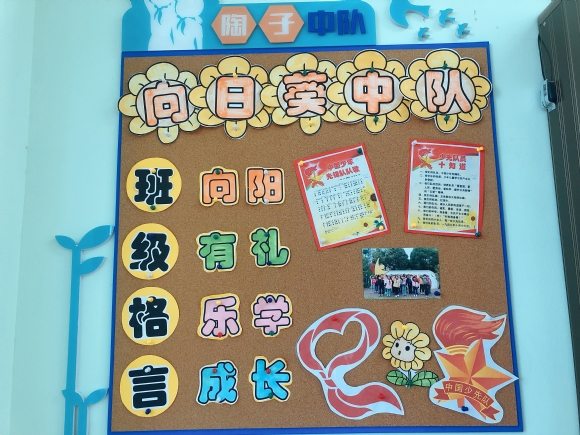 陶子中队
向日葵中队
班级格言
向阳
有礼
乐学
成长
中国少年
先锋队队歌
少先队员
十知道
中国少先队